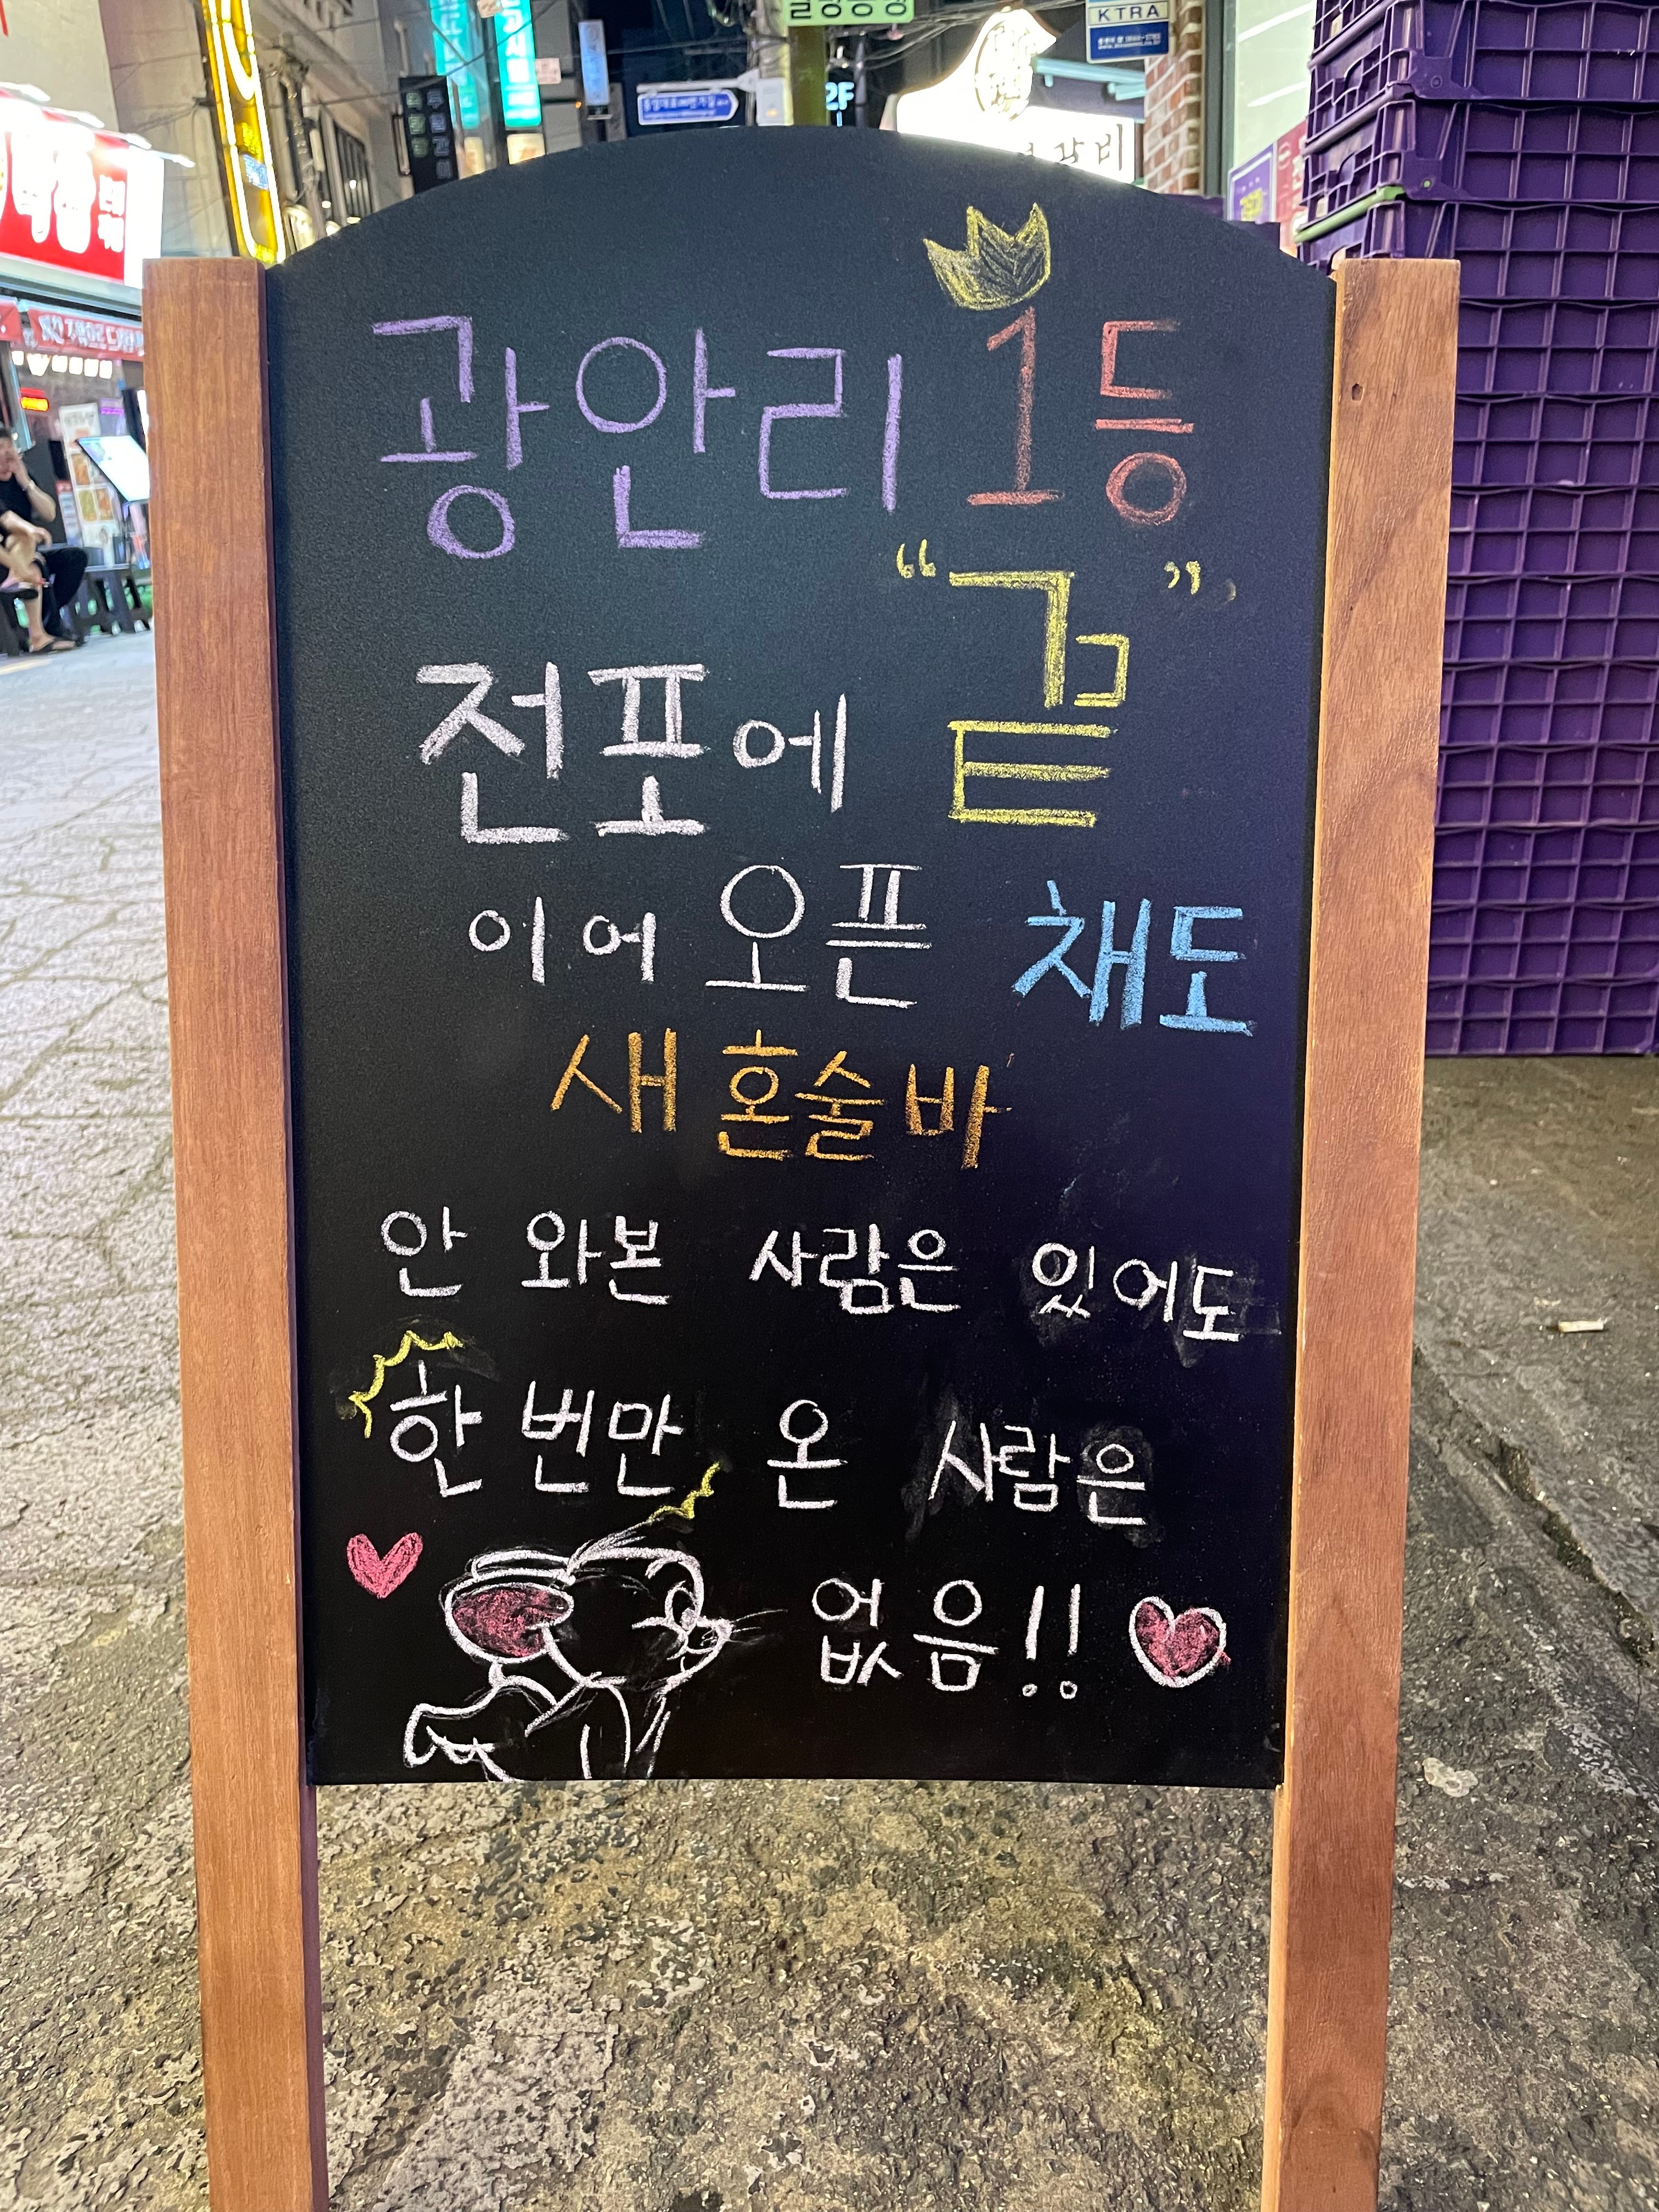 KTRA
2F
갈비
광안리 1등
전포에 “끝”
이어 오픈 채도
새 혼술바
안 와본 사람은 있어도
한 번만 온 사람은
없음!!